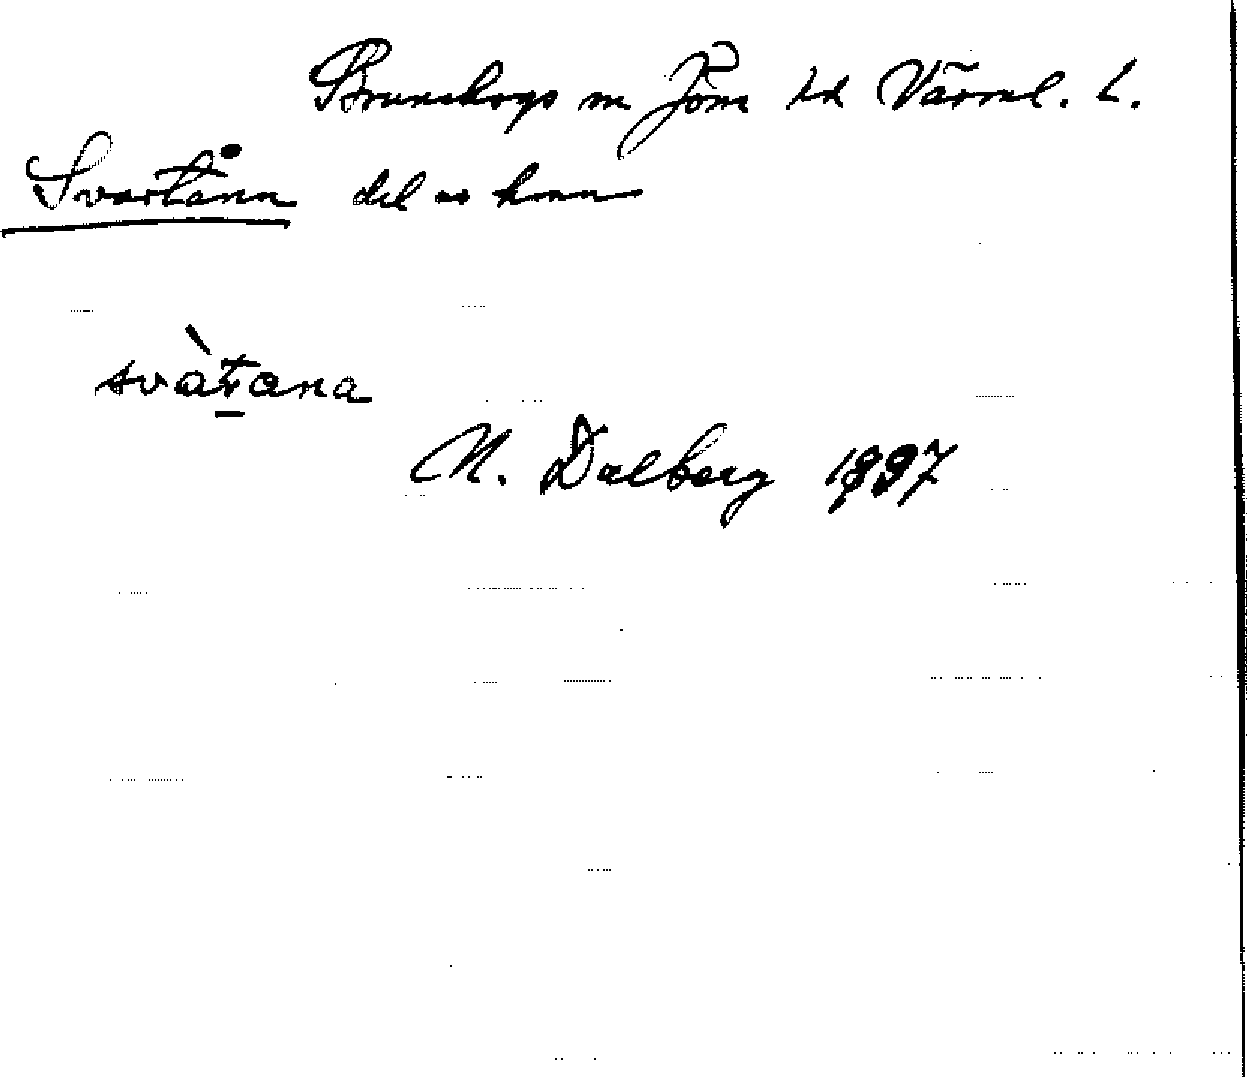 Brunskogs sn Jösse hd Värml. l.
Svartånn del av hmn
svàtana
N. Dalberg 1897